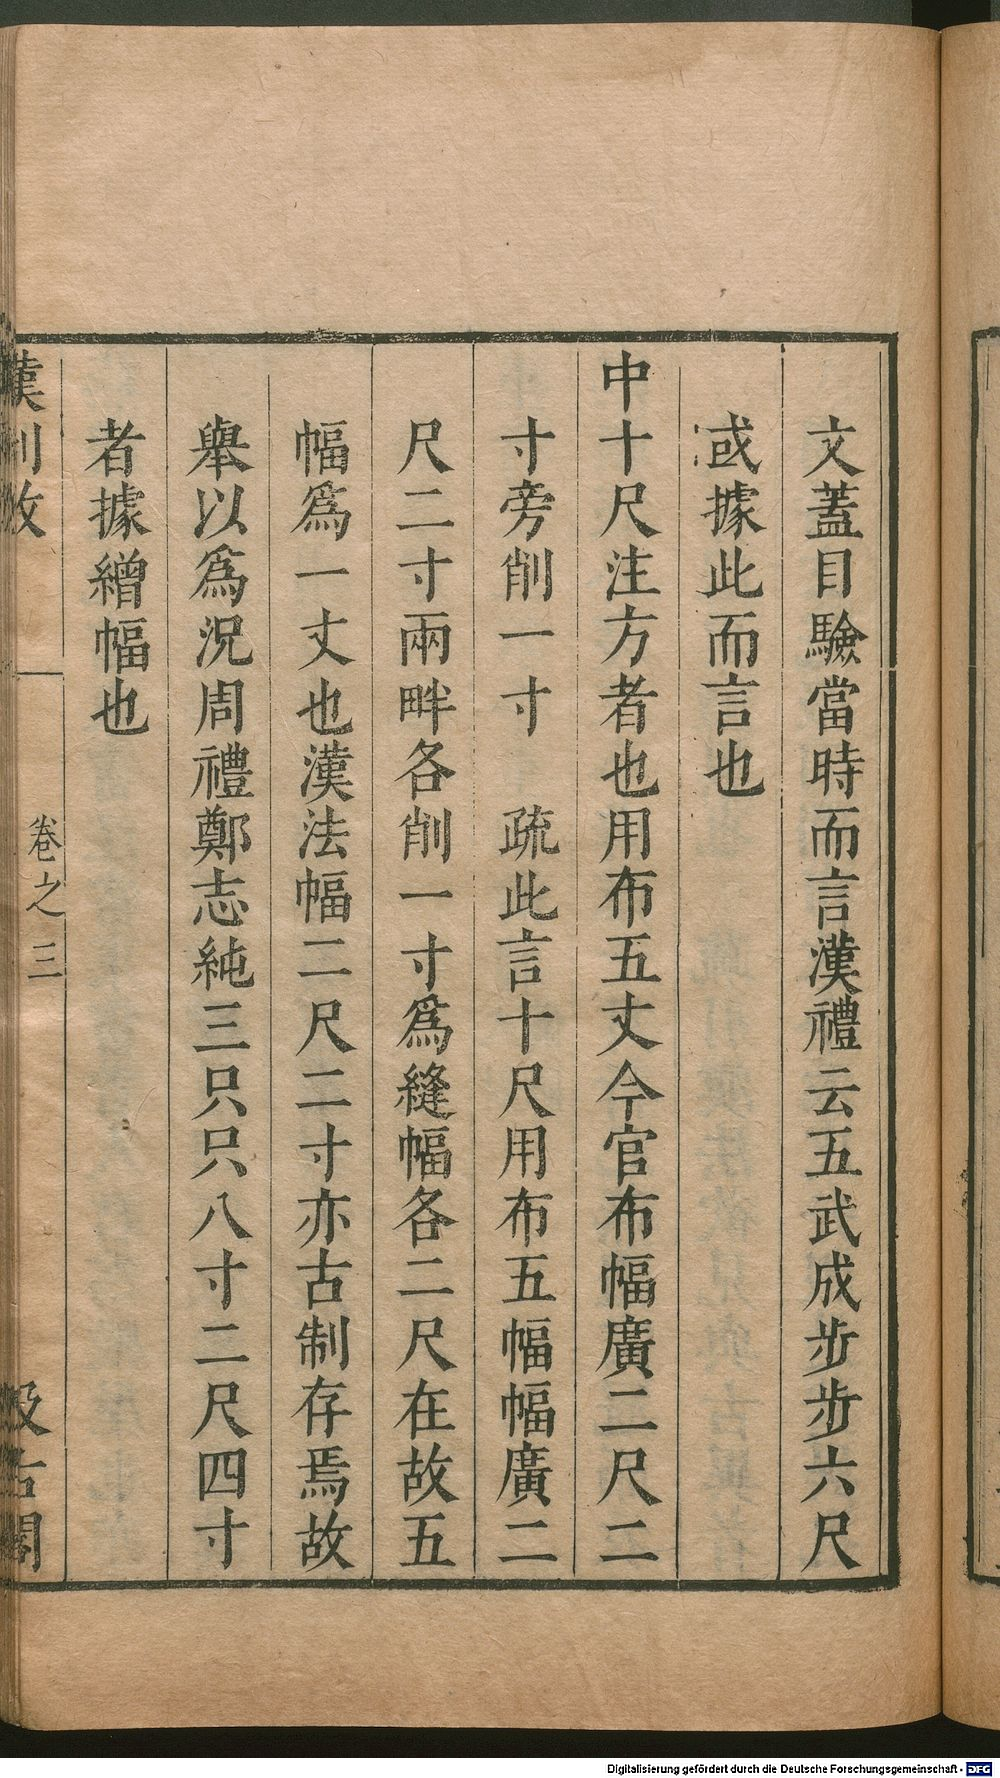 文蓋目驗當時而言漢禮云五武成步步六尺
或據此而言也
中十尺注方者也用布五丈今官布幅廣二尺二
寸旁削一寸　疏此言十尺用布五幅幅廣二
尺二寸兩畔各削一寸爲縫幅各二尺在故五
幅爲一丈也漢法幅二尺二寸亦古制存焉故
舉以爲況周禮鄭志純三只只八寸二尺四寸
者據繒幅也
漢制攷
卷之三
汲古閣
Digitalisierung gefördert durch die Deutsche Forschungsgemeinschaft - DFG